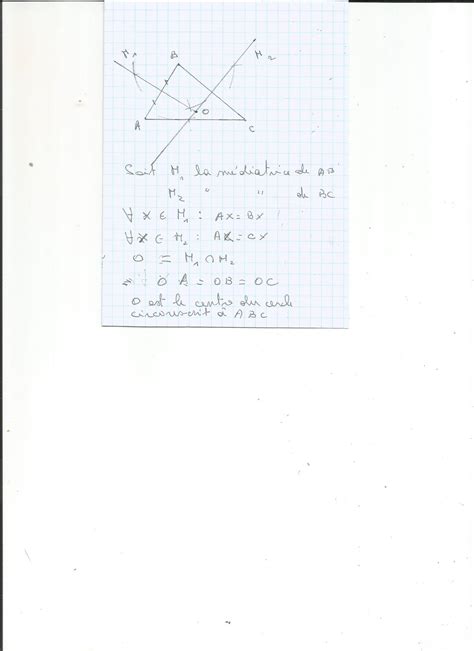 M1 B M2
A O C
Soit M1 la médiatrice de AB
M2 " " de BC
∀ X ∈ M1 : AX = BX
∀ X ∈ M2 : AX = CX
O = M1 ∩ M2
O A = OB = OC
O est le centre du cercle
circonscrit à ABC